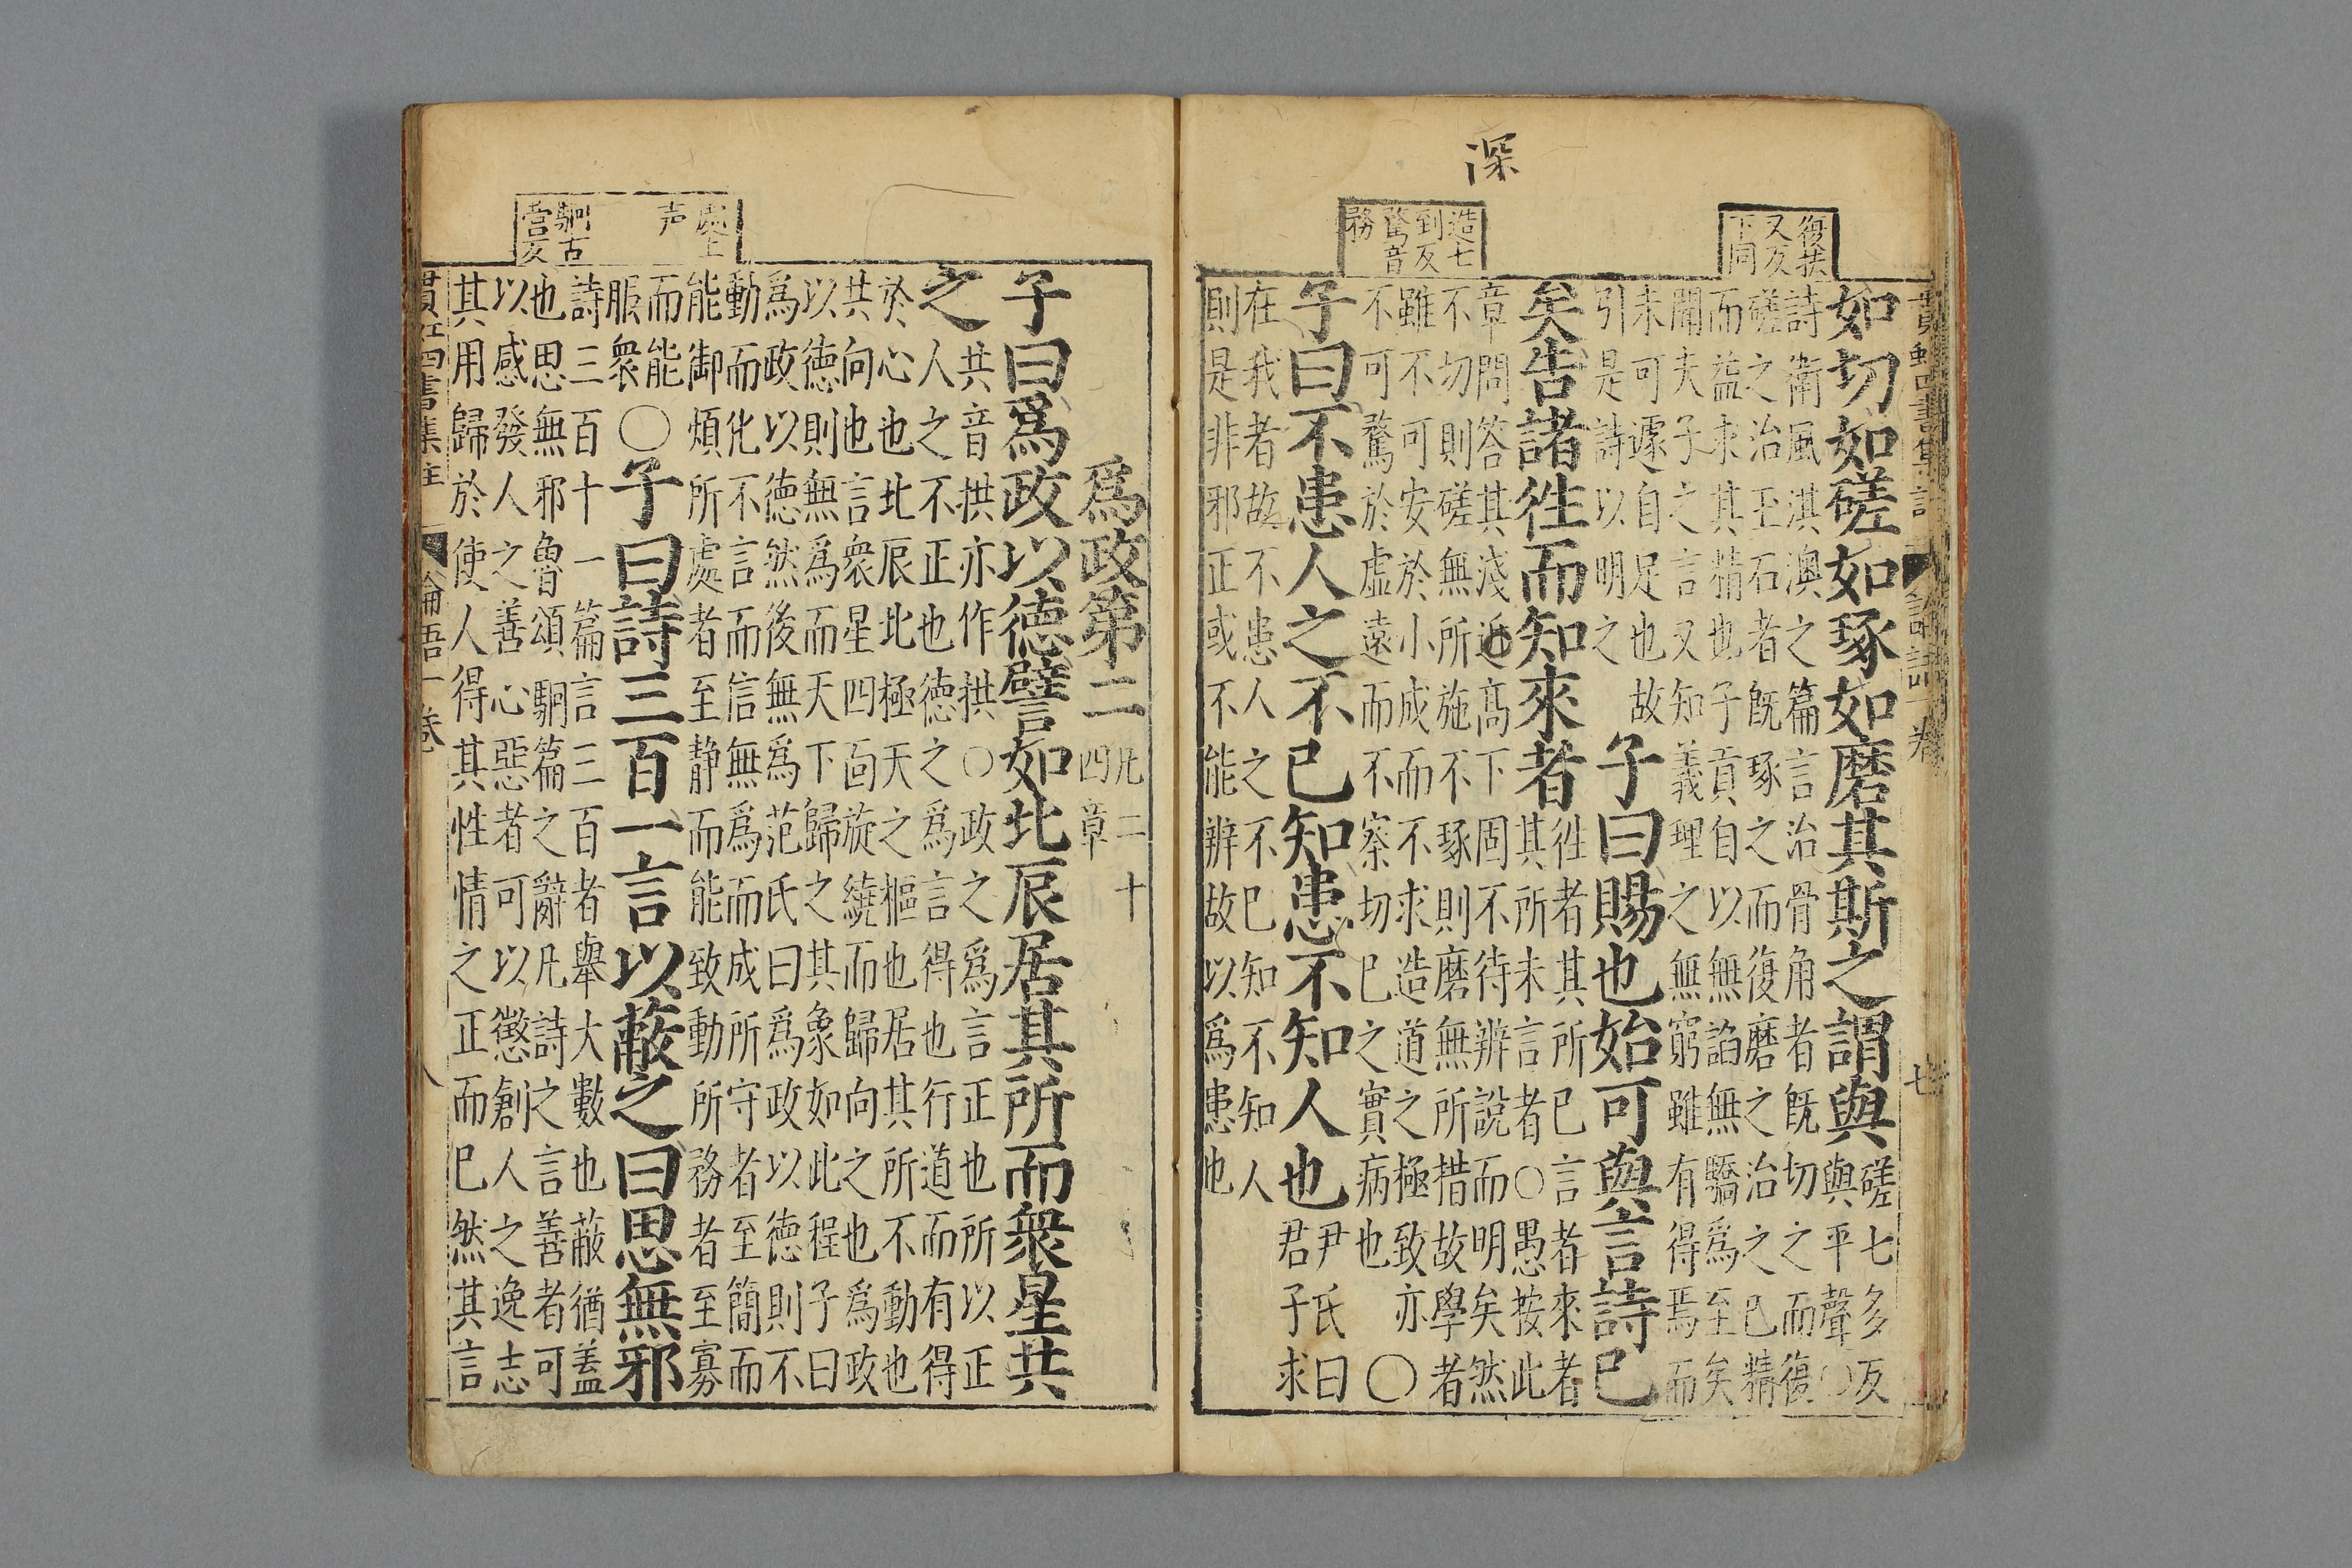 復扶
又反
下同
深
造七
到反
騖音
務
四書集註 論語一卷 七
如切如磋如琢如磨其斯之謂與
磋七多反
與平聲○
詩衛風淇澳之篇言治骨角者既切之而復
磋之治玉石者既琢之而復磨之治之已精
而益求其精也子貢自以無諂無驕爲至矣
聞夫子之言又知義理之無窮雖有得焉而
未可遽自足也故
引是詩以明之
子曰賜也始可與言詩已
矣告諸徃而知來者
徃者其所已言者來者
其所未言者○愚按此
章問答其淺近高下固不待辨說而明矣然
不切則磋無所施不琢則磨無所措故學者
雖不可安於小成而不求造道之極致亦
不可騖於虛遠而不察切已之實病也○
子曰不患人之不已知患不知人也
尹氏曰
君子求
在我者故不患人之不已知不知人
則是非邪正或不能辨故以爲患也
處上
声
駉古
爲政第二
凡二十
四章
子曰爲政以德譬如北辰居其所而衆星共
之
共音拱亦作拱○政之爲言正也所以正
人之不正也德之爲言得也行道而有得
於心也北辰北極天之樞也居其所不動也
共向也言衆星四面旋繞而歸向之也爲政
以德則無爲而天下歸之其象如此程子曰
爲政以德然後無爲范氏曰爲政以德則不
動而化不言而信無爲而成所守者至簡而
能御煩所處者至静而能致動所務者至寡
而能
服衆
○子曰詩三百一言以蔽之曰思無邪
詩三百十一篇言三百者舉大數也蔽猶蓋
也思無邪魯頌駉篇之辭凡詩之言善者可
以感發人之善心惡者可以懲創人之逸志
其用歸於使人得其性情之正而已然其言
四書集註 論語一卷 八